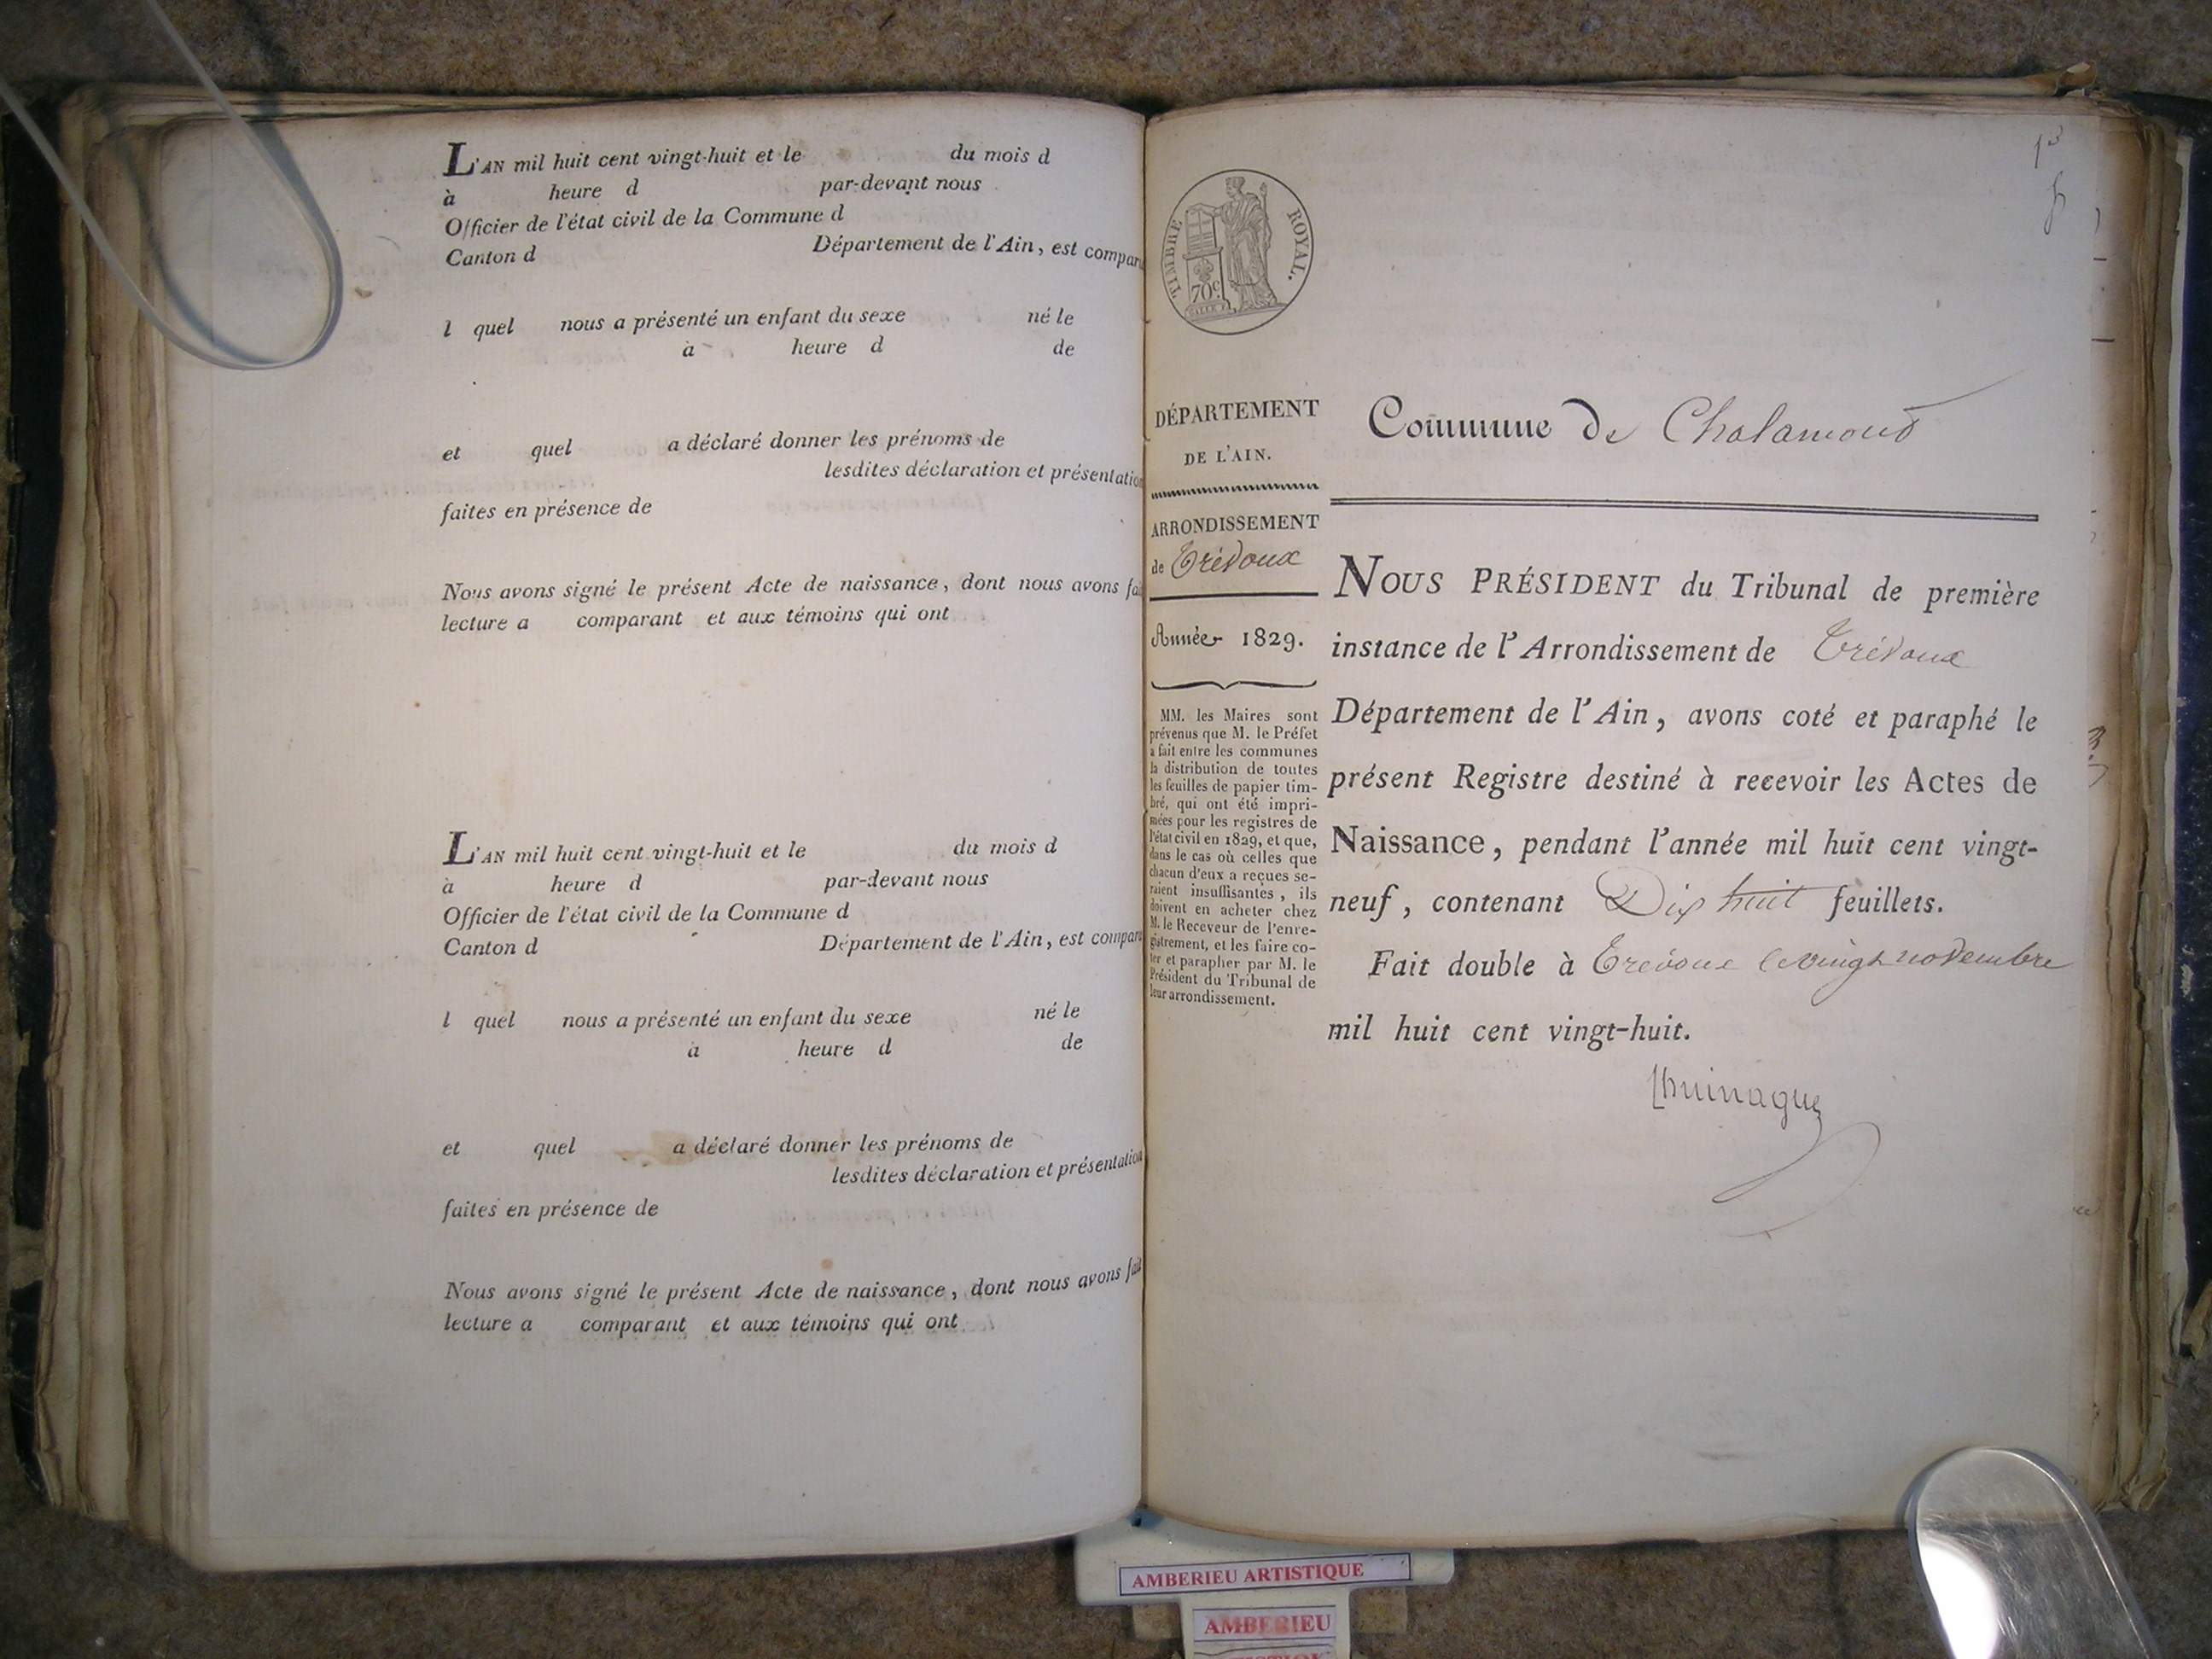 L'AN mil huit cent vingt-huit et le du mois d
à heure d par-devant nous
Officier de l'état civil de la Commune d
Canton d Département de l'Ain, est compar
l quel nous a présenté un enfant du sexe né le
à heure d de
et quel a déclaré donner les prénoms de
lesdites déclaration et présentation
faites en présence de
Nous avons signé le présent Acte de naissance, dont nous avons fai
lecture a comparant et aux témoins qui ont
L'AN mil huit cent vingt-huit et le du mois d
à heure d par-devant nous
Officier de l'état civil de la Commune d
Canton d Département de l'Ain, est compar
l quel nous a présenté un enfant du sexe né le
à heure d de
et quel a déclaré donner les prénoms de
lesdites déclaration et présentation
faites en présence de
Nous avons signé le présent Acte de naissance, dont nous avons fait
lecture a comparant et aux témoins qui ont
TIMBRE ROYAL.
70c
DÉPARTEMENT
DE L'AIN.
ARRONDISSEMENT
de Trévoux
Année 1829.
MM. les Maires sont
prévenus que M. le Préfet
a fait entre les communes
la distribution de toutes
les feuilles de papier tim-
bré, qui ont été impri-
mées pour les registres de
l'état civil en 1829, et que,
dans le cas où celles que
chacun d'eux a reçues se-
raient insuffisantes, ils
doivent en acheter chez
M. le Receveur de l'enre-
gistrement, et les faire co-
ter et parapher par M. le
Président du Tribunal de
leur arrondissement.
Commune de Chalamont
NOUS PRÉSIDENT du Tribunal de première
instance de l'Arrondissement de Trévoux
Département de l'Ain, avons coté et paraphé le
présent Registre destiné à recevoir les Actes de
Naissance, pendant l'année mil huit cent vingt-
neuf, contenant Dix huit feuillets.
Fait double à Trévoux le vingt novembre
mil huit cent vingt-huit.
AMBERIEU ARTISTIQUE
AMBERIEU